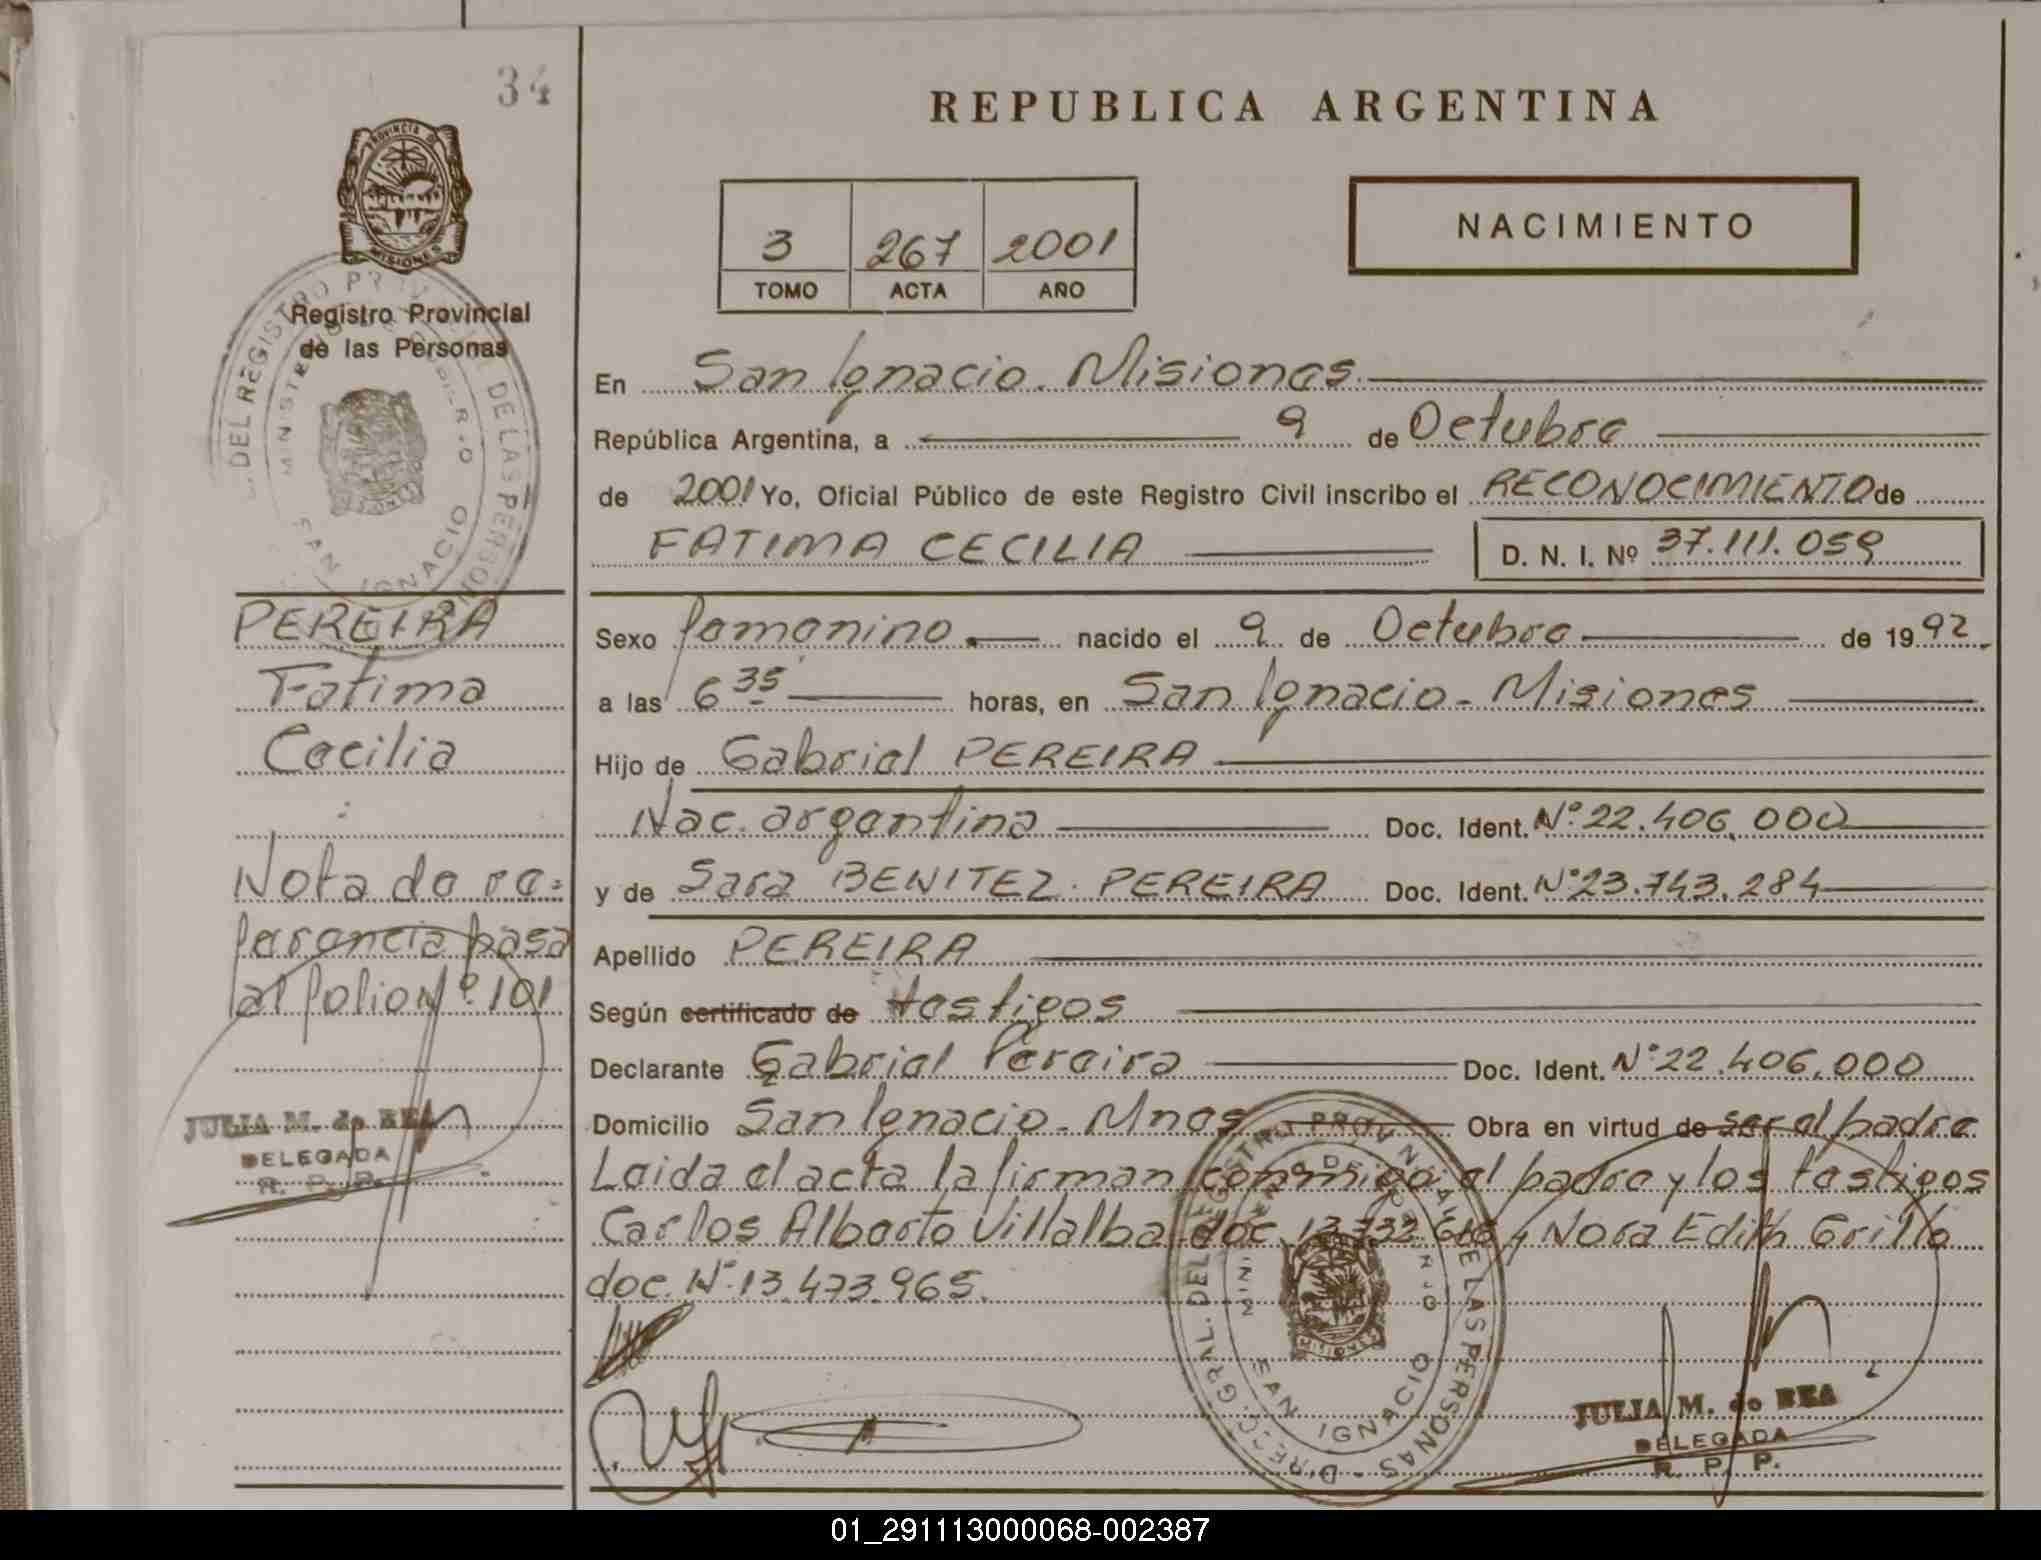 34
REPUBLICA ARGENTINA
PROVINCIA DE
MISIONES
Registro Provincial
de las Personas
NACIMIENTO
3 267 2001
TOMO ACTA AÑO
En San Ignacio. Misiones.
República Argentina, a 9 de Octubre
de 2001 Yo, Oficial Público de este Registro Civil inscribo el RECONOCIMIENTO de
FATIMA CECILIA D. N. I. Nº 37.111.059
PEREIRA
Fatima
Cecilia
Nota de re=
ferencia pasa
al folio Nº 101
JULIA M. de REA
DELEGADA
R. P. P.
Sexo femenino. nacido el 9 de Octubre de 1992.
a las 6 35 horas, en San Ignacio - Misiones
Hijo de Gabriel PEREIRA
Nac. argentina Doc. Ident. Nº 22.406.000
y de Sara BENITEZ. PEREIRA Doc. Ident. Nº 23.743.284
Apellido PEREIRA
Según certificado de testigos
Declarante Gabriel Pereira Doc. Ident. Nº 22.406.000
Domicilio San Ignacio - Mnes Obra en virtud de ser el padre
Leida el acta la firman conmigo el padre y los testigos
Carlos Alberto Villalba doc. y Nora Edith Grillo
doc. Nº 13.473.965.
DIRECC. GRAL. DEL REGISTRO PROVINCIAL DE LAS PERSONAS
SAN IGNACIO
MISIONES
JULIA M. de REA
DELEGADA
R. P. P.
01_291113000068-002387